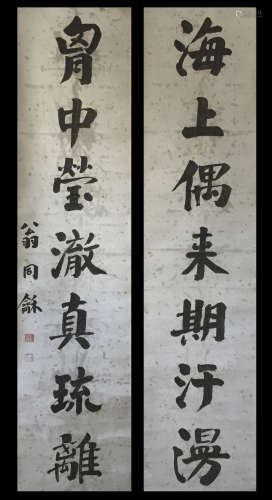 海上偶来期汗漫
胷中莹澈真琉離
翁同龢